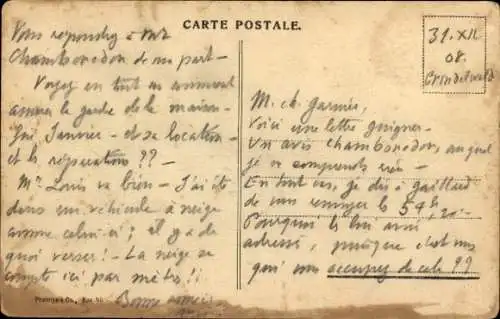 CARTE POSTALE.
31. XII
08.
Grindelwald
Vous répondez à Mr
Chamboredon de ma part -
Voyez en tout
la garde de la maison -
Janvier - et sa location -
et les réparations ??-
Mr. Louis va bien - J'ai été
dans un véhicule à neige
comme celui-ci ; il y a de
quoi verser ! - La neige se
compte ici par mètres !!
Bonne
M. ch. Garnier,
Voici une lettre Guigner -
Un avis Chamboredon, auquel
je ne comprends rien -
En tout cas, je dis à Gaillard
de vous envoyer le 54
Pourquoi le lui avoir
adressé, puisque c'est vous
qui vous occupez de cela ??